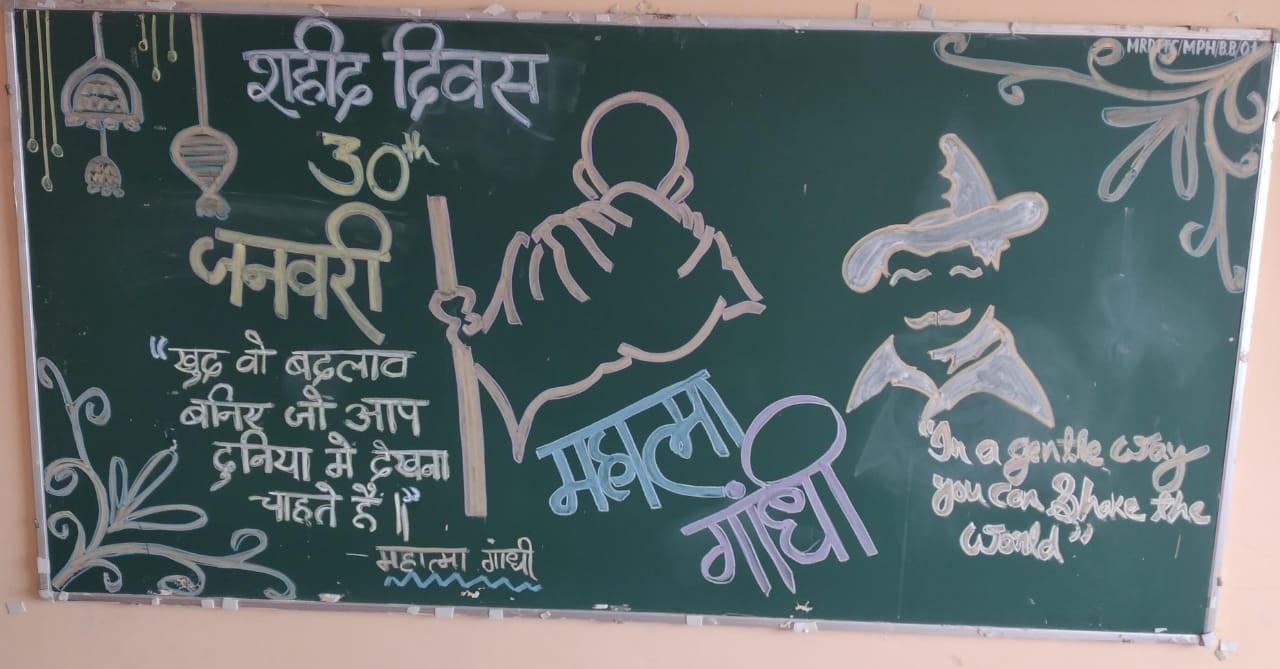 शहीद दिवस
30th
जनवरी
"खुद वो बदलाव
बनिए जो आप
दुनिया में देखना
चाहते है॥"
— महात्मा गांधी
महात्मा
गांधी
"In a gentle way
you can Shake the
World"